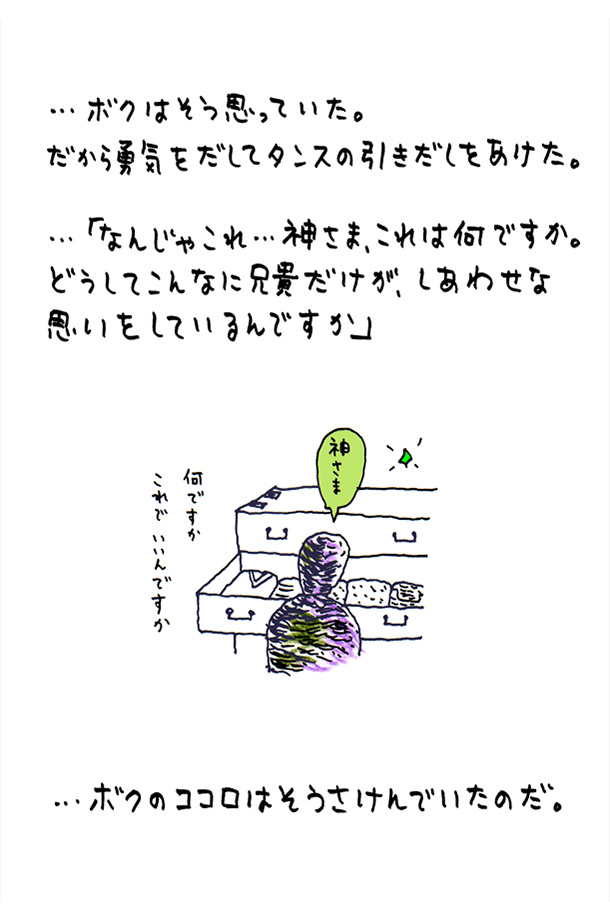 …ボクはそう思っていた。
だから勇気をだしてタンスの引きだしをあけた。
…「なんじゃこれ…神さま、これは何ですか。
どうしてこんなに兄貴だけが、しあわせな
思いをしているんですか」
神さま
何ですか
これで いいんですか
…ボクのココロはそうさけんでいたのだ。